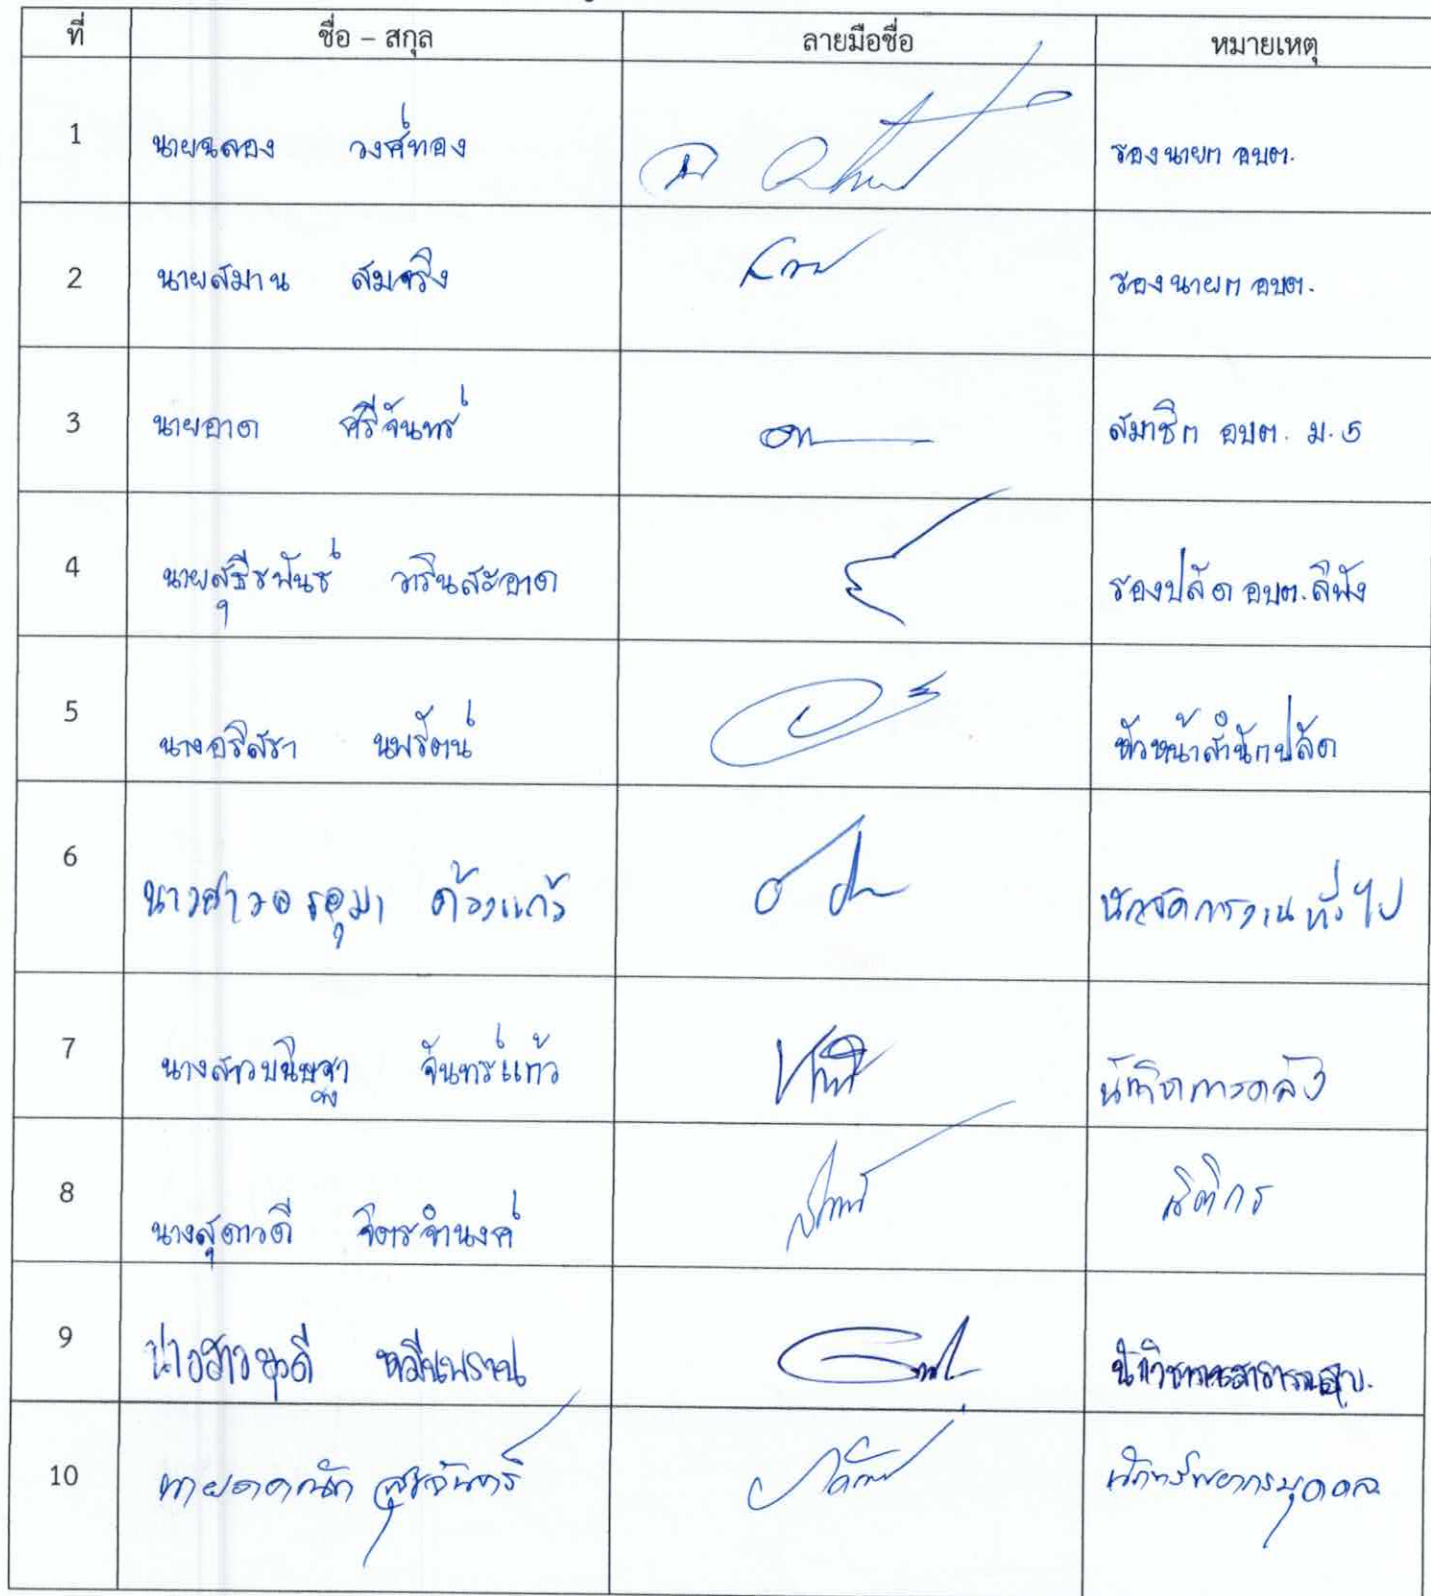 ที่ ชื่อ – สกุล ลายมือชื่อ หมายเหตุ
1 นายฉลอง วงศ์ทอง รองนายก อบต.
2 นายสมาน สมจริง รองนายก อบต.
3 นายอาด ศรีจันทร์ สมาชิก อบต. ม.5
4 นายสุธีรพันธ์ วารินสะอาด รองปลัด อบต.ลิพัง
5 นางอริสรา นพรัตน์ หัวหน้าสำนักปลัด
6 นางสาวอรอุมา ด้วงแก้ว นักจัดการงานทั่วไป
7 นางสาวขนิษฐา จันทร์แก้ว นักวิชาการคลัง
8 นางสุดาวดี จิตรจำนงค์ นิติกร
9 นางสาวยุวดี หมีนพราน นักวิชาการสาธารณสุข.
10 นักทรัพยากรบุคคล